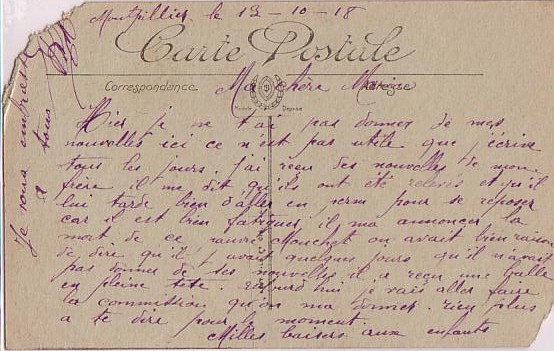 Montpellier le 13-10-18
Carte Postale
Correspondance
Adresse
Ma chère Marie
Hier je ne t'ai pas donner de mes
nouvelles ici ce n'est pas utile que j'écrive
tous les jours. j'ai reçu des nouvelles de mon
frère il me dit qu'ils ont été relevés et qu'il
lui tarde bien d'aller en perm pour se reposer
car il est bien fatigués, il m'a annoncer la
mort de ce pauvre Mouchet on avait bien raison
de dire qu'il y avait quelques jours qu'il n'avait
pas donner de ses nouvelles il a reçu une balle
en pleine tête. aujourd'hui je vais aller faire
la commission qu'on m'a donner. rien plus
a te dire pour le moment.
Milles baisers aux enfants
Je vous embrasse
a tous